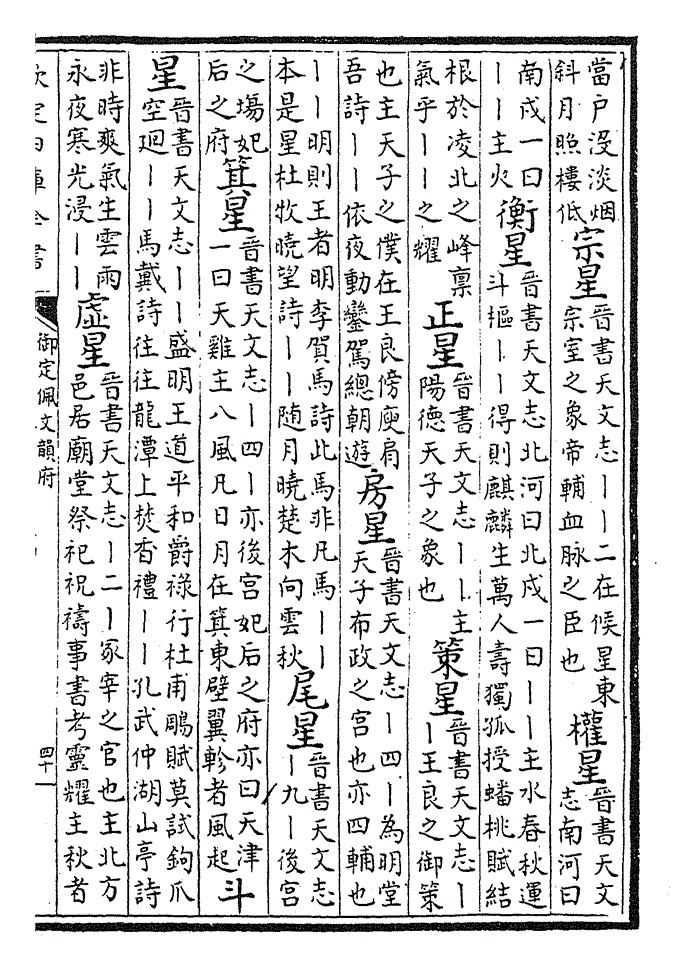 當户没淡烟斜月照樓低宗星晉書天文志丨丨二在候星東宗室之象帝輔血脉之臣也權星晉書天文志南河曰
南戍一曰丨丨主火衡星晉書天文志北河曰北戍一曰丨丨主水春秋運斗樞丨丨得則麒麟生萬人壽獨孤授蟠桃賦結
根於凌北之峰禀氣乎丨丨之耀正星晉書天文志丨丨主陽德天子之象也策星晉書天文志丨丨王良之御策
也主天子之僕在王良傍庾肩吾詩丨丨依夜動鑾駕總朝遊房星晉書天文志丨四丨為明堂天子布政之宫也亦四輔也
丨丨明則王者明李賀馬詩此馬非凡馬丨丨本是星杜牧曉望詩丨丨随月曉楚木向雲秋尾星晉書天文志丨九丨後宫
之塲妃后之府箕星晉書天文志丨四丨亦後宫妃后之府亦曰天津一曰天雞主八風凡日月在箕東壁翼軫者風起斗
星晉書天文志丨丨盛明王道平和爵禄行杜甫鵰賦莫試鉤爪空廻丨丨馬戴詩往往龍潭上焚香禮丨丨孔武仲湖山亭詩
非時爽氣生雲雨永夜寒光浸丨丨虚星晉書天文志丨二丨冢宰之官也主北方邑居廟堂祭祀祝禱事書考靈耀主秋者
欽定四庫全書
御定佩文韻府
四十